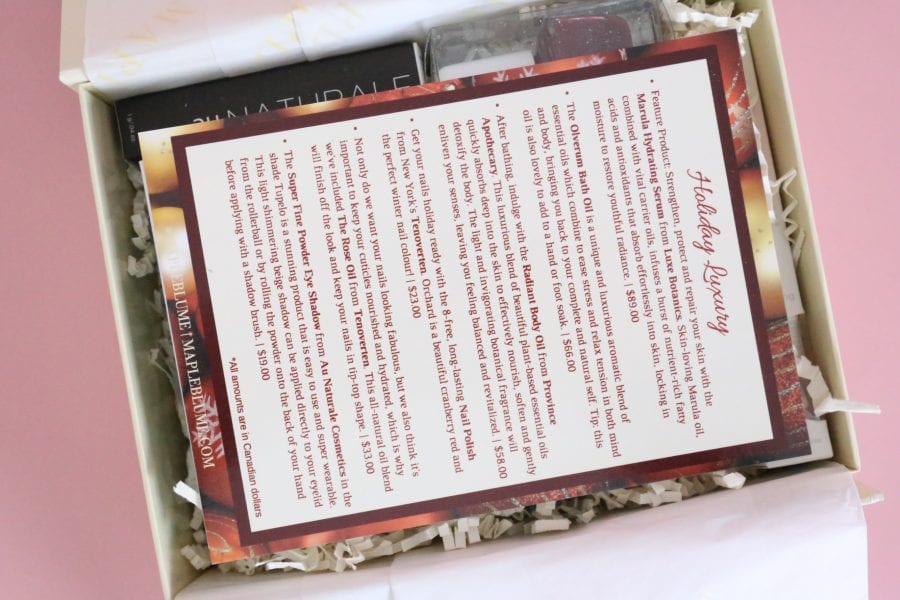 Holiday Luxury
• Feature Product: Strengthen, protect and repair your skin with the
Marula Hydrating Serum from Luxe Botanics. Skin-loving Marula oil,
combined with vital carrier oils, infuses a burst of nutrient-rich fatty
acids and antioxidants that absorb effortlessly into skin, locking in
moisture to restore youthful radiance. | $89.00
• The Olverum Bath Oil is a unique and luxurious aromatic blend of
essential oils which combine to ease stress and relax tension in both mind
and body, bringing you back to your complete and natural self. Tip: this
oil is also lovely to add to a hand or foot soak. | $66.00
• After bathing, indulge with the Radiant Body Oil from Province
Apothecary. This luxurious blend of beautiful plant-based essential oils
quickly absorbs deep into the skin to effectively nourish, soften and gently
detoxify the body. The light and invigorating botanical fragrance will
enliven your senses, leaving you feeling balanced and revitalized. | $58.00
• Get your nails holiday ready with the 8-free, long-lasting Nail Polish
from New York's Tenoverten. Orchard is a beautiful cranberry red and
the perfect winter nail colour! | $23.00
• Not only do we want your nails looking fabulous, but we also think it's
important to keep your cuticles nourished and hydrated, which is why
we've included The Rose Oil from Tenoverten. This all-natural oil blend
will finish off the look and keep your nails in tip-top shape. | $33.00
• The Super Fine Powder Eye Shadow from Au Naturale Cosmetics in the
shade Tupelo is a stunning product that is easy to use and super wearable.
This light shimmering beige shadow can be applied directly to your eyelid
from the rollerball or by rolling the powder onto the back of your hand
before applying with a shadow brush. | $19.00
*All amounts are in Canadian dollars
MAPLEBLUME.COM
au NATURALE